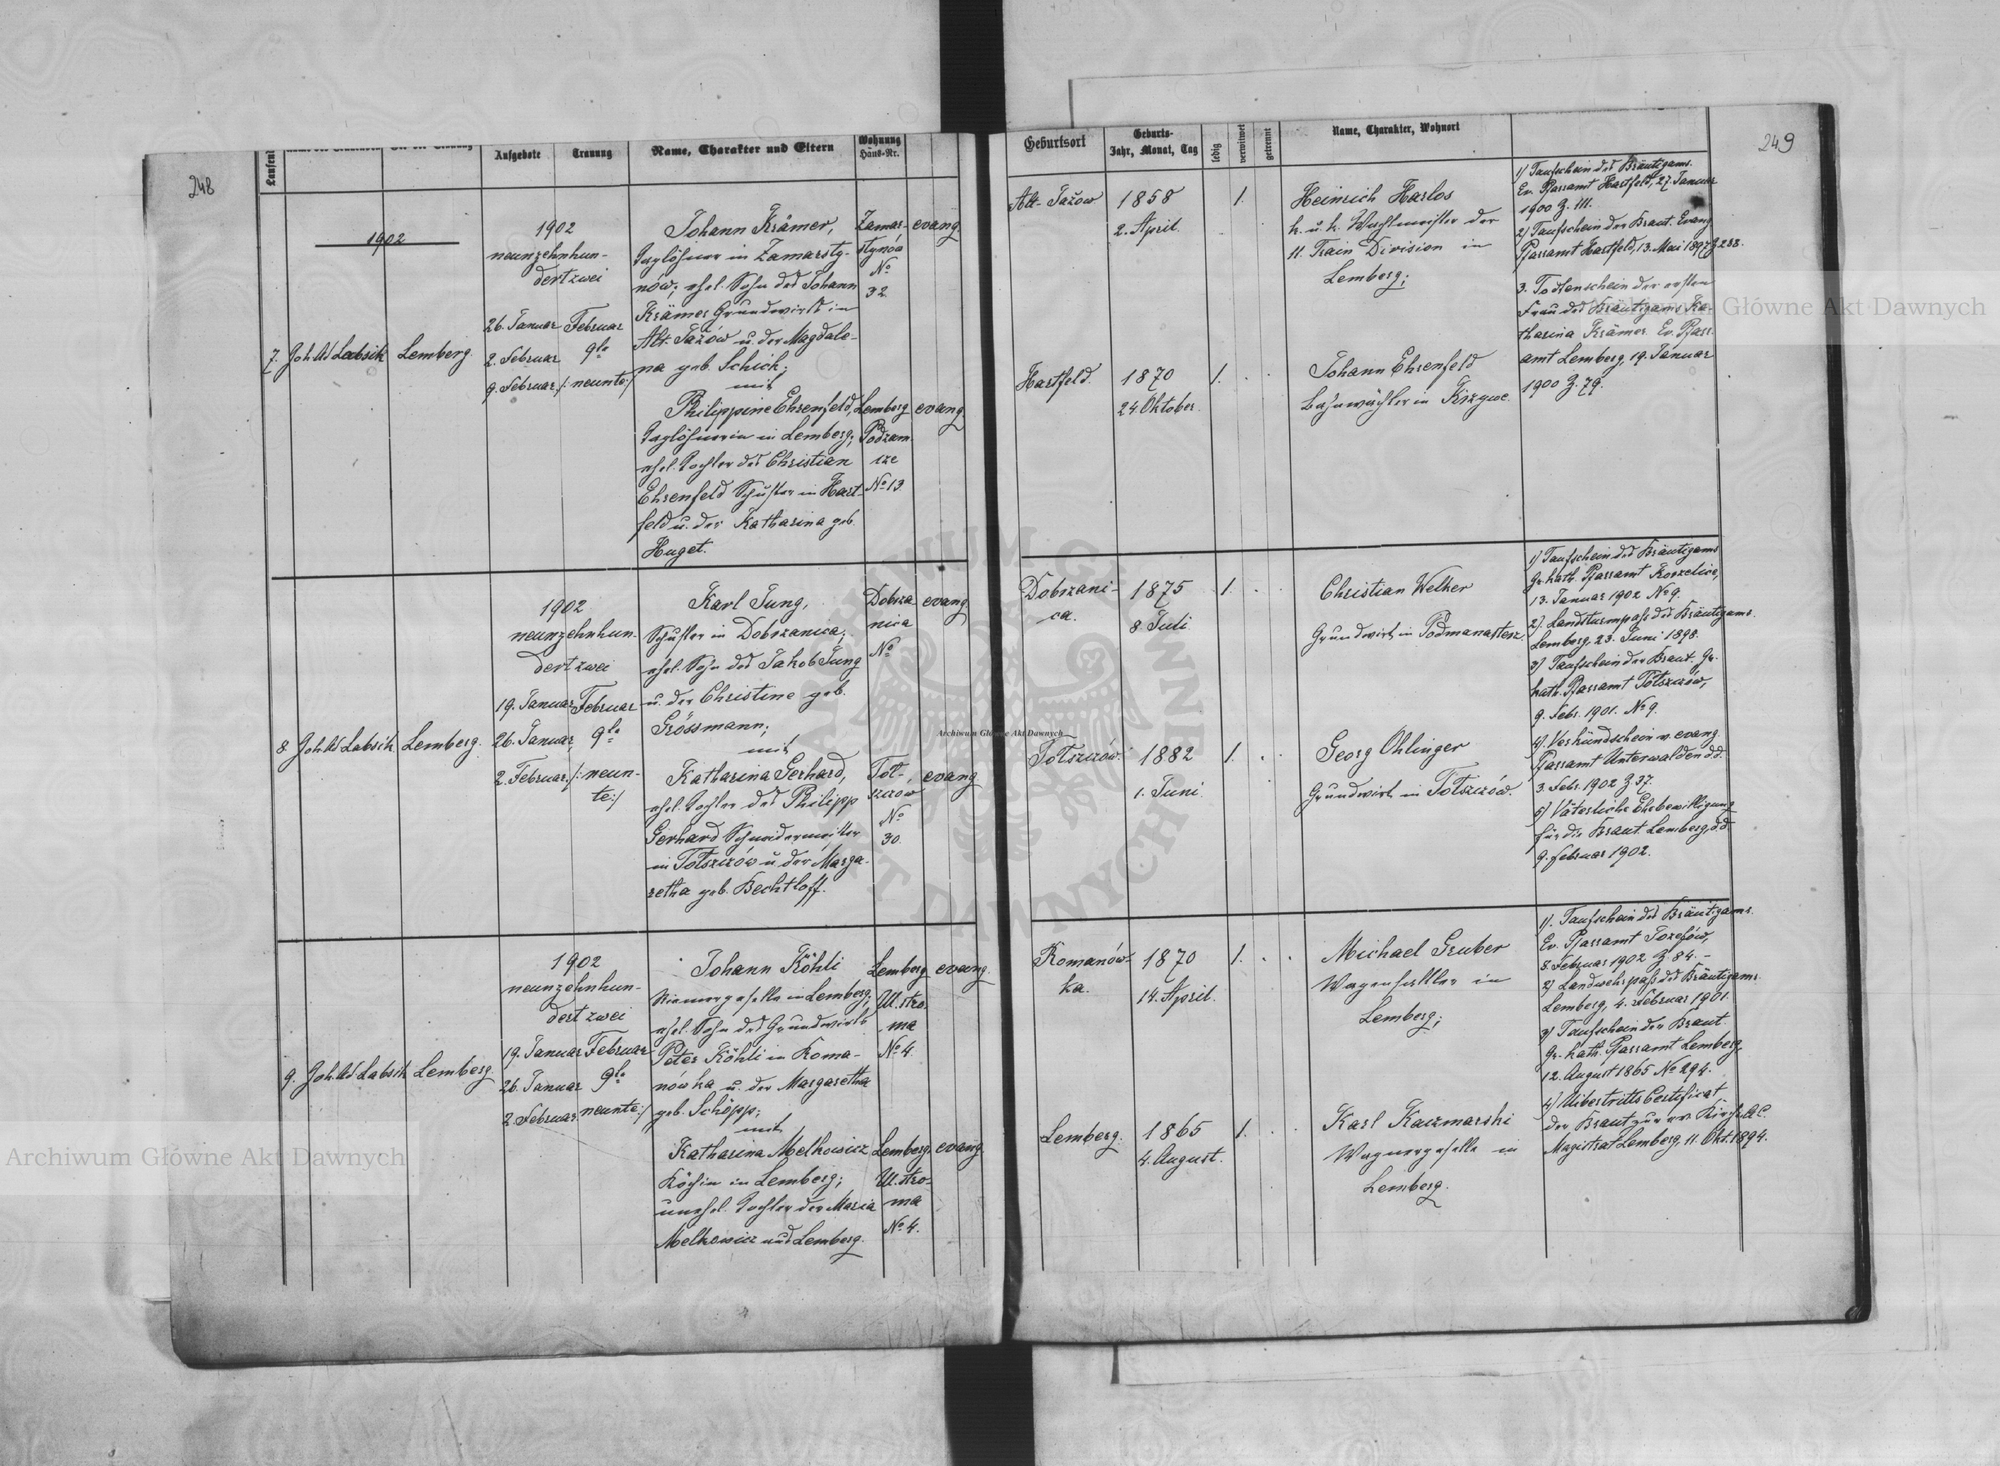 248
Laufend
Aufgebote
Trauung
Name, Charakter und Eltern
Wohnung
Haus-Nr.
1902
7.
Joh Ad Labsik
Lemberg.
1902
neunzehnhun-
dertzwei
26. Januar
2. Februar
9. Februar
Februar
9te
/: neunte :/
Johann Krämer,
Taglöhner in Zamarsty-
nów; ehel. Sohn des Johann
Krämer Grundwirth in
Alt-Jażów u. der Magdale-
na geb. Schick;
mit
Philippine Ehrenfeld,
Taglöhnerin in Lemberg;
ehel. Tochter des Christian
Ehrenfeld Schuster in Hart-
feld u. der Katharina geb.
Huget.
Zamar-
stynów
No
32
evang.
Lemberg
Podzam
cze
No 13.
evang.
8
Joh Ad Labsik
Lemberg.
1902
neunzehnhun-
dertzwei
19. Januar
26. Januar
2. Februar
Februar
9te
/: neun-
te :/
Karl Jung,
Schuster in Dobrzanica;
ehel. Sohn des Jakob Jung
u. der Christine geb.
Grössmann;
mit
Katharina Gerhard,
ehel. Tochter des Philipp
Gerhard Schneidermeister
in Tołszczów u der Marga-
retha geb. Bechtloff.
Dobrza
nica
No
evang.
Toł-
szczow
No
30.
evang
9.
Joh. Ad Labsik
Lemberg.
1902
neunzehnhun-
dertzwei
19. Januar
26. Januar
2. Februar
Februar
9te
neunte :/
Johann Köhli
Riemergeselle in Lemberg,
ehel. Sohn des Grundwirts
Peter Köhli in Roma-
nówka u. der Margaretha
geb. Schöpp;
mit
Katharina Melkowicz
Köchin in Lemberg;
unehel. Tochter der Maria
Melkowicz aus Lemberg.
Lemberg
Ul. stro-
ma
No 4.
evang.
Lemberg.
Ul. stro-
ma
No 4.
evang.
249
Geburtsort
Geburts-
Jahr, Monat, Tag
ledig
verwitwet
getrennt
Name, Charakter, Wohnort
Alt-Jażow
1858
2. April.
1.
Heinrich Harlos
k. u. k. Wachtmeister der
11. Train Division in
Lemberg;
Hartfeld.
1870
24. Oktober.
1.
Johann Ehrenfeld
Bahnwächter in
1) Taufschein des Bräutigams.
Ev. Pfarramt Hartfeld, 27. Januar
1900 Z. 111.
2) Taufschein der Braut. Evang
Pfarramt Hartfeld, 13. Mai 1897 Z 233.
3. Todtenschein der ersten
Frau des Bräutigams Ka-
tharina Krämer. Ev. Pfarr-
amt Lemberg, 19. Januar
1900 Z. 79.
Dobrzani-
ca.
1875
8. Juli
1.
Christian Welker
Grundwirt in Podmanasterz.
Tołszczów.
1882
1. Juni.
1.
Georg Ohlinger
Grundwirt in Tołszczów.
1) Taufschein des Bräutigams
Gr. kath. Pfarramt Korzelice,
13. Januar 1902 No 9.
2) Landsturmpass des Bräutigams.
Lemberg, 23. Juni 1898.
3) Taufschein der Braut. Gr.
kath. Pfarramt Tołszczów,
9. Febr. 1901. No 9.
4) Verkündschein v. evang.
Pfarramt Unterwalden d.d.
3. Febr. 1902 Z 37.
5) Väterliche Ehebewilligung
für die Braut. Lemberg d.d
9. Februar 1902.
Romanów-
ka.
1870
14. April.
1.
Michael Gruber
Wagensattler in
Lemberg;
Lemberg.
1865
4. August.
1.
Karl Kaczmarski
Wagnergeselle in
Lemberg.
1). Taufschein des Bräutigams.
Ev. Pfarramt Josefów,
8. Februar 1902 Z 84.-
2) Landwehrpass des Bräutigams.
Lemberg, 4. Februar 1901.
3) Taufschein der Braut.
Gr. kath. Pfarramt Lemberg,
12. August 1865 No 294.
4) Uibertritts Certificat
der Braut zur ev. Kirche A.C.
Magistrat Lemberg, 11. Okt. 1894.
Archiwum Główne Akt Dawnych
Archiwum Główne Akt Dawnych
Główne Akt Dawnych